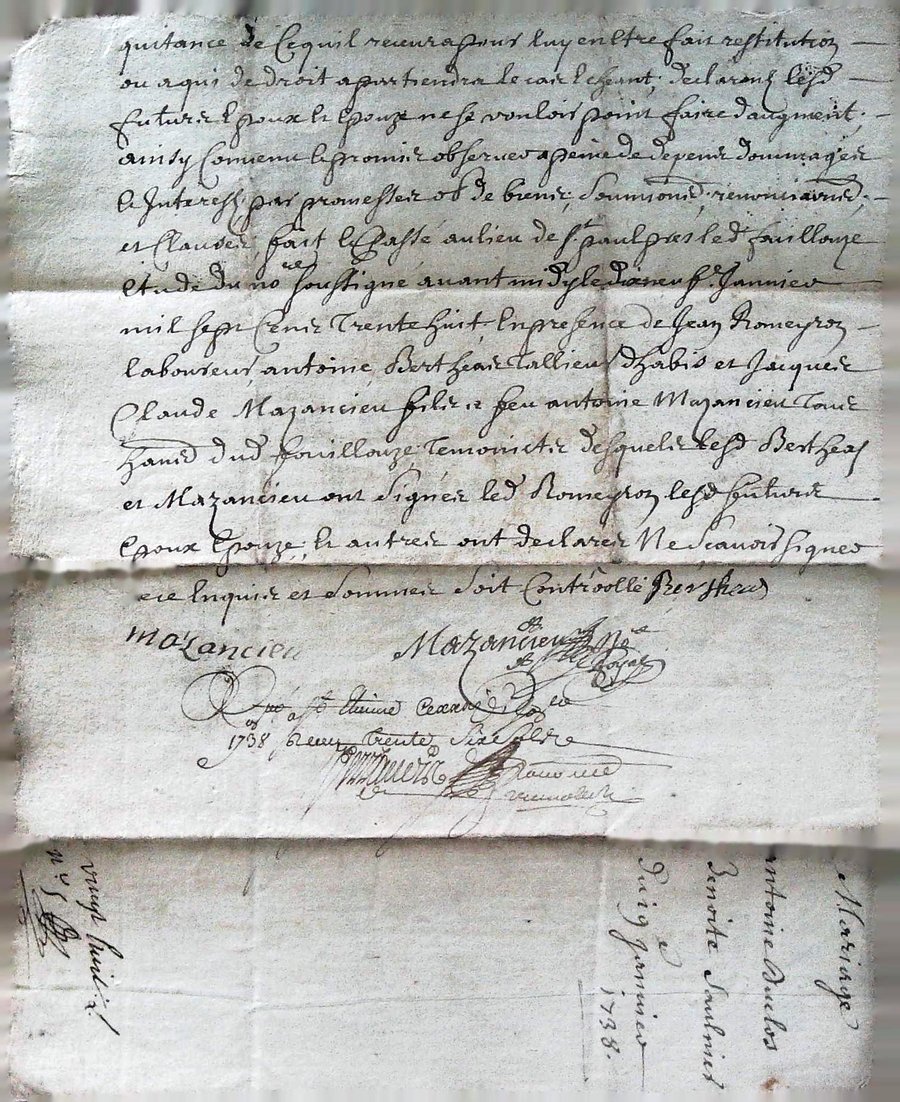 quitance de Cequil recevra pour luy en Etre fait restitution
ou a qui de droit apartiendra le cas Echeant, declarent lesd
futurs Epoux et Epouze ne se vouloir point faire daugment,
ainsy Convenu et promis observer a peine de depens dommages
et Interest, par promesses ob de biens, soumions, renonciaons,
et Clauses, fait et Passé au lieu de St paul pres led fouillouze
Etude du nore soussigné avant midy le dixneufe Janvier
mil sept Cents Trente huit, En presence de Jean Romeyron
laboureur, antoine Bertheas Tallieur dhabis et Jacques
Claude Mazancieu fils a feu antoine Mazancieu
dud fouillouze Temoins desquels lesd Bertheas
et Mazancieu ont signés led Romeyron lesd futurs
Epoux Epouze, et autres ont declarés Ne scavoir signer
de ce Enquis et sommés soit Controollé Bertheas
mazancieu Mazancieu Nre Royal
a St Etienne
1738 Reçu Trente Six sols
Mariage
antoine Duclos
Benoite Saulnier
Du 19e Janvier
1738.
vingt huit
n° 5